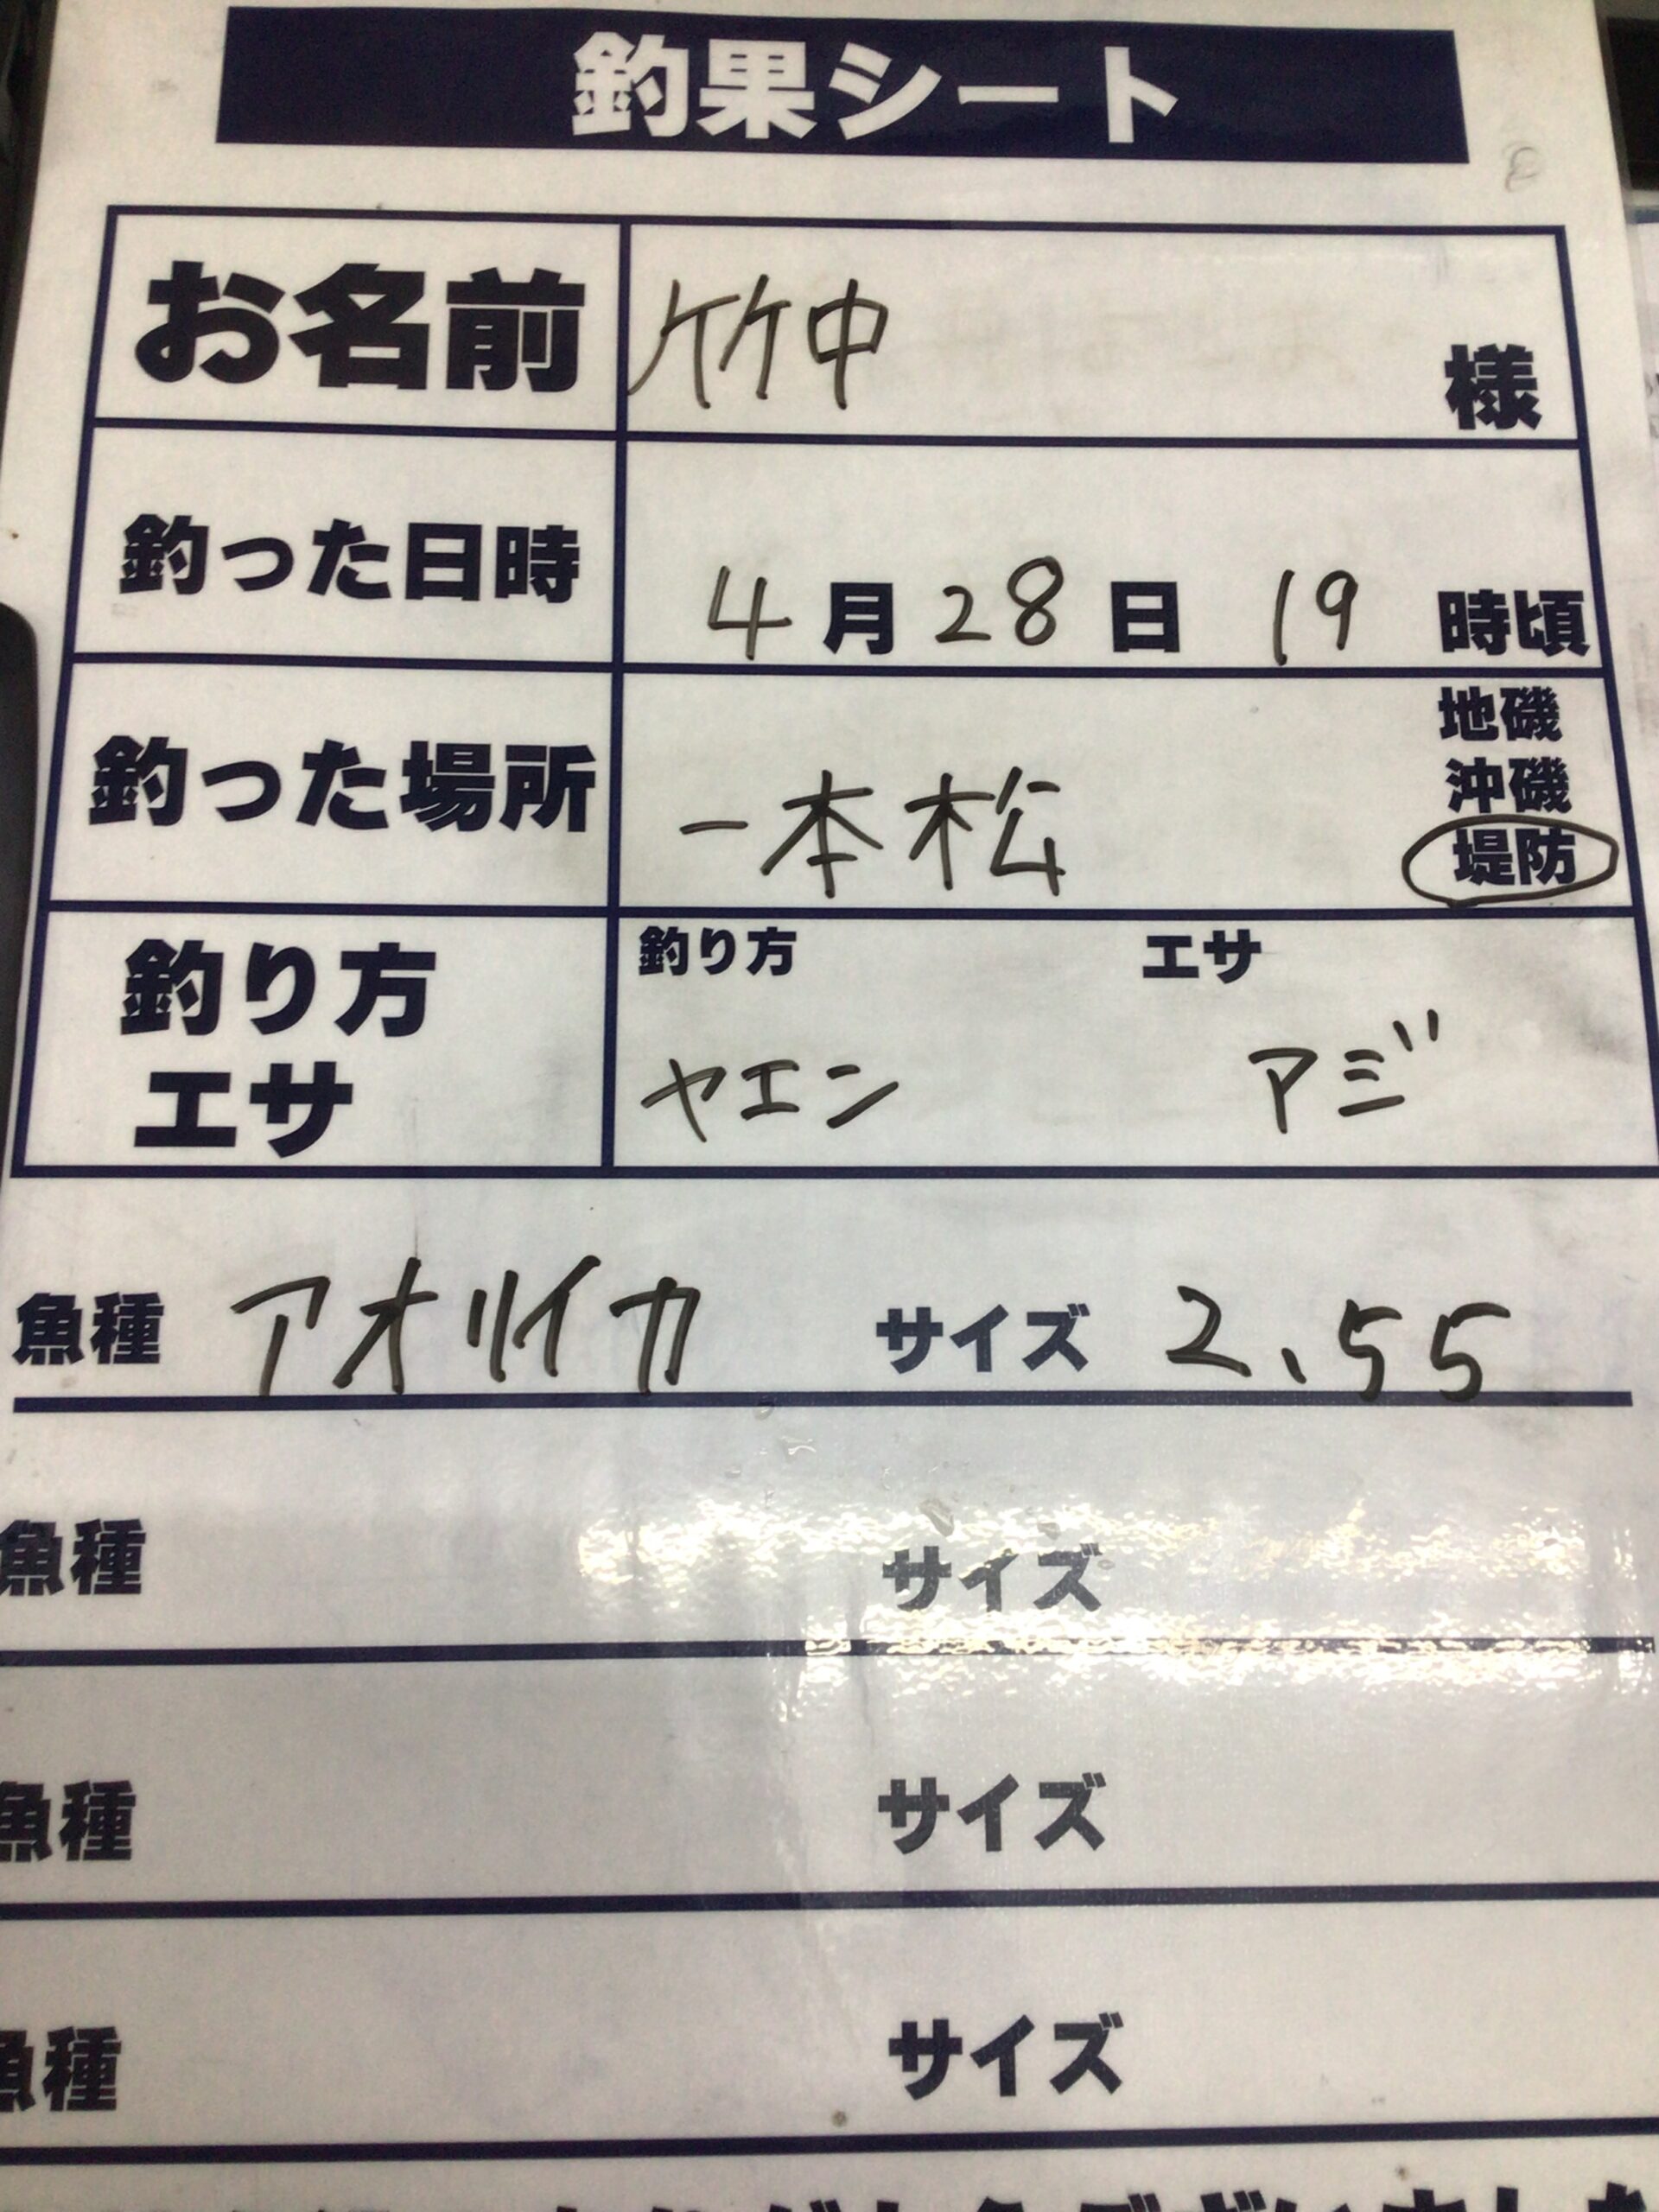 釣果シート
お名前 竹中 様
釣った日時 4月28日 19時頃
釣った場所 一本松 地磯
沖磯
堤防
釣り方 エサ
釣り方
エサ
ヤエン アジ
魚種 アオリイカ サイズ 2.55
魚種 サイズ
魚種 サイズ
魚種 サイズ